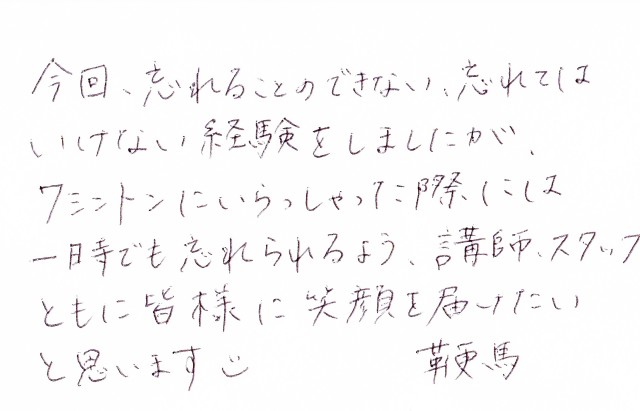 今回、忘れることのできない、忘れては
いけない経験をしましたが、
ワシントンにいらっしゃった際には
一時でも忘れられるよう、講師、スタッフ
ともに皆様に笑顔を届けたい
と思います
鞭馬